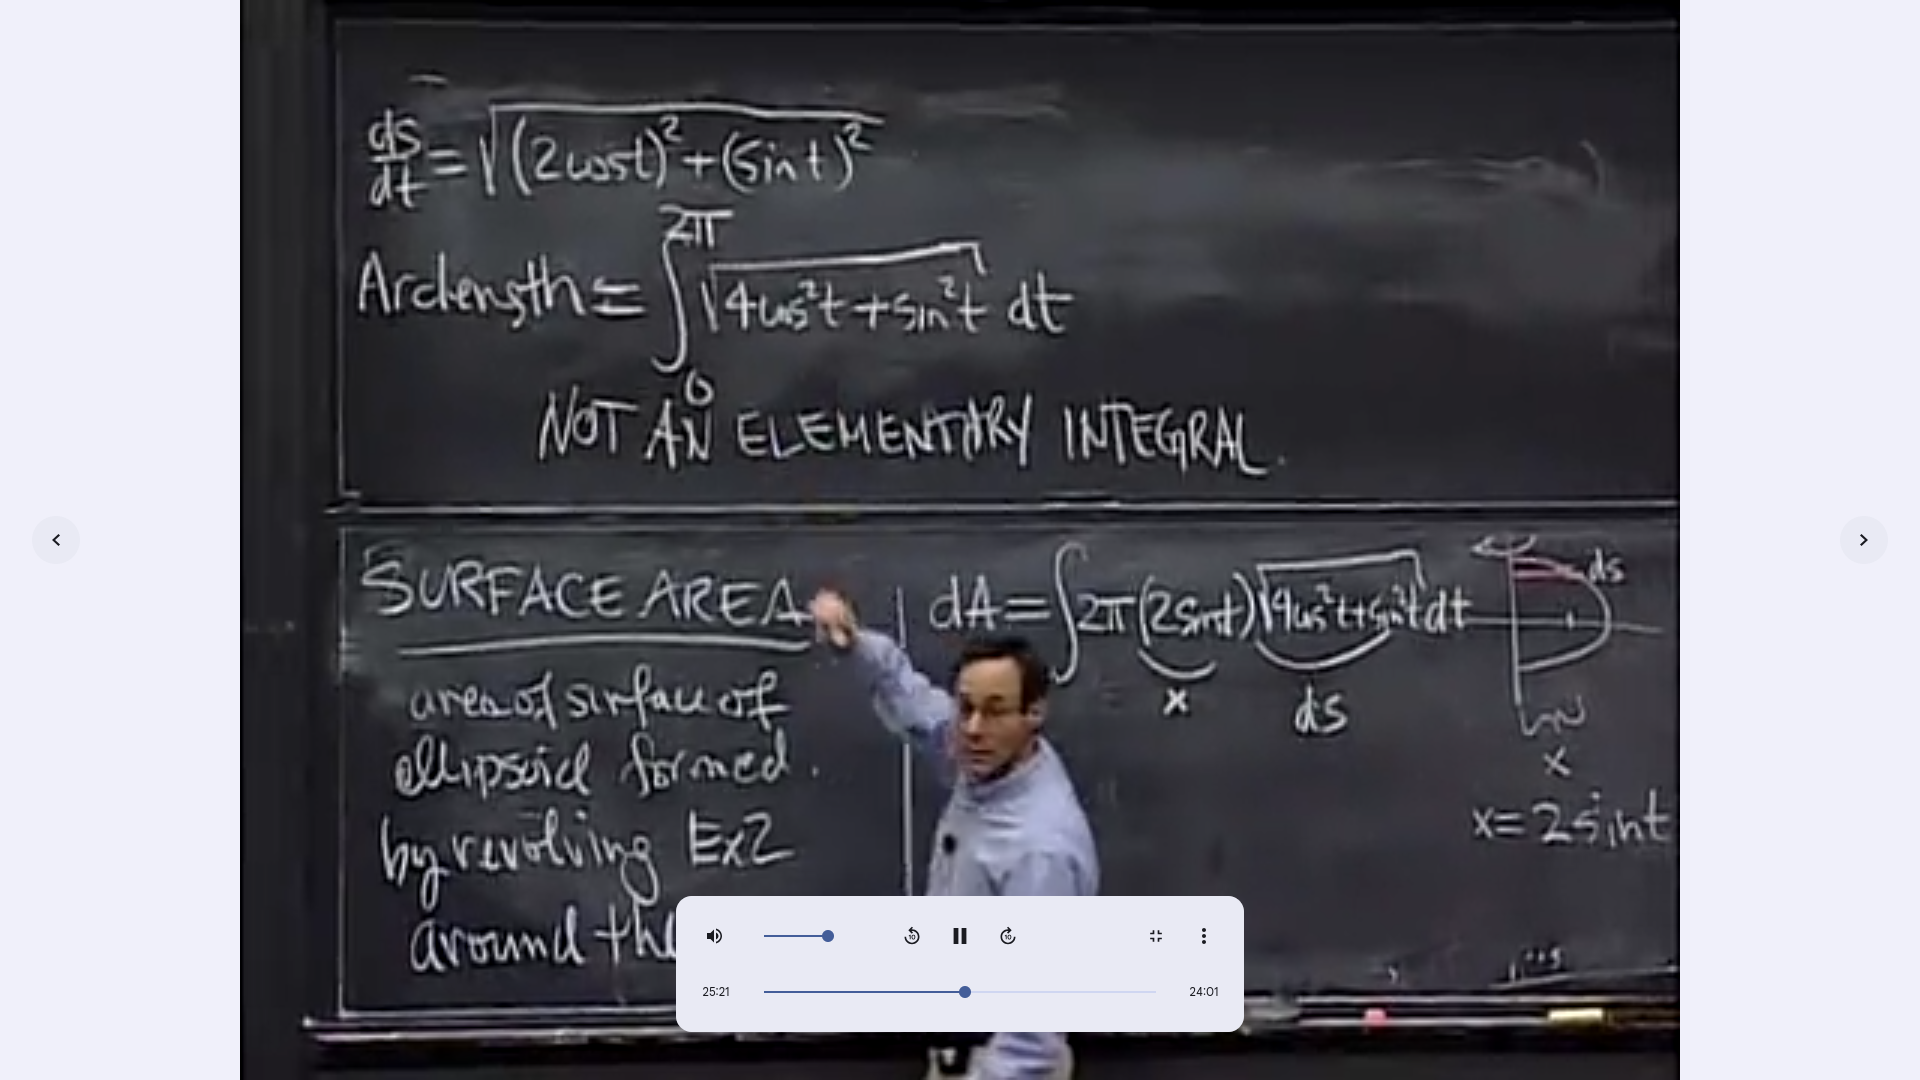 ds/dt = √((2cost)² + (sint)²)
Arclength = ∫₀^2π √(4cos²t + sin²t) dt
NOT AN ELEMENTARY INTEGRAL.
SURFACE AREA
area of surface of
ellipsoid formed.
by revolving Ex2
around the
dA = ∫2π(2sint)√(4cos²t+sin²t) dt
x
ds
ds
x
x = 2sint
10
10
25:21
24:01